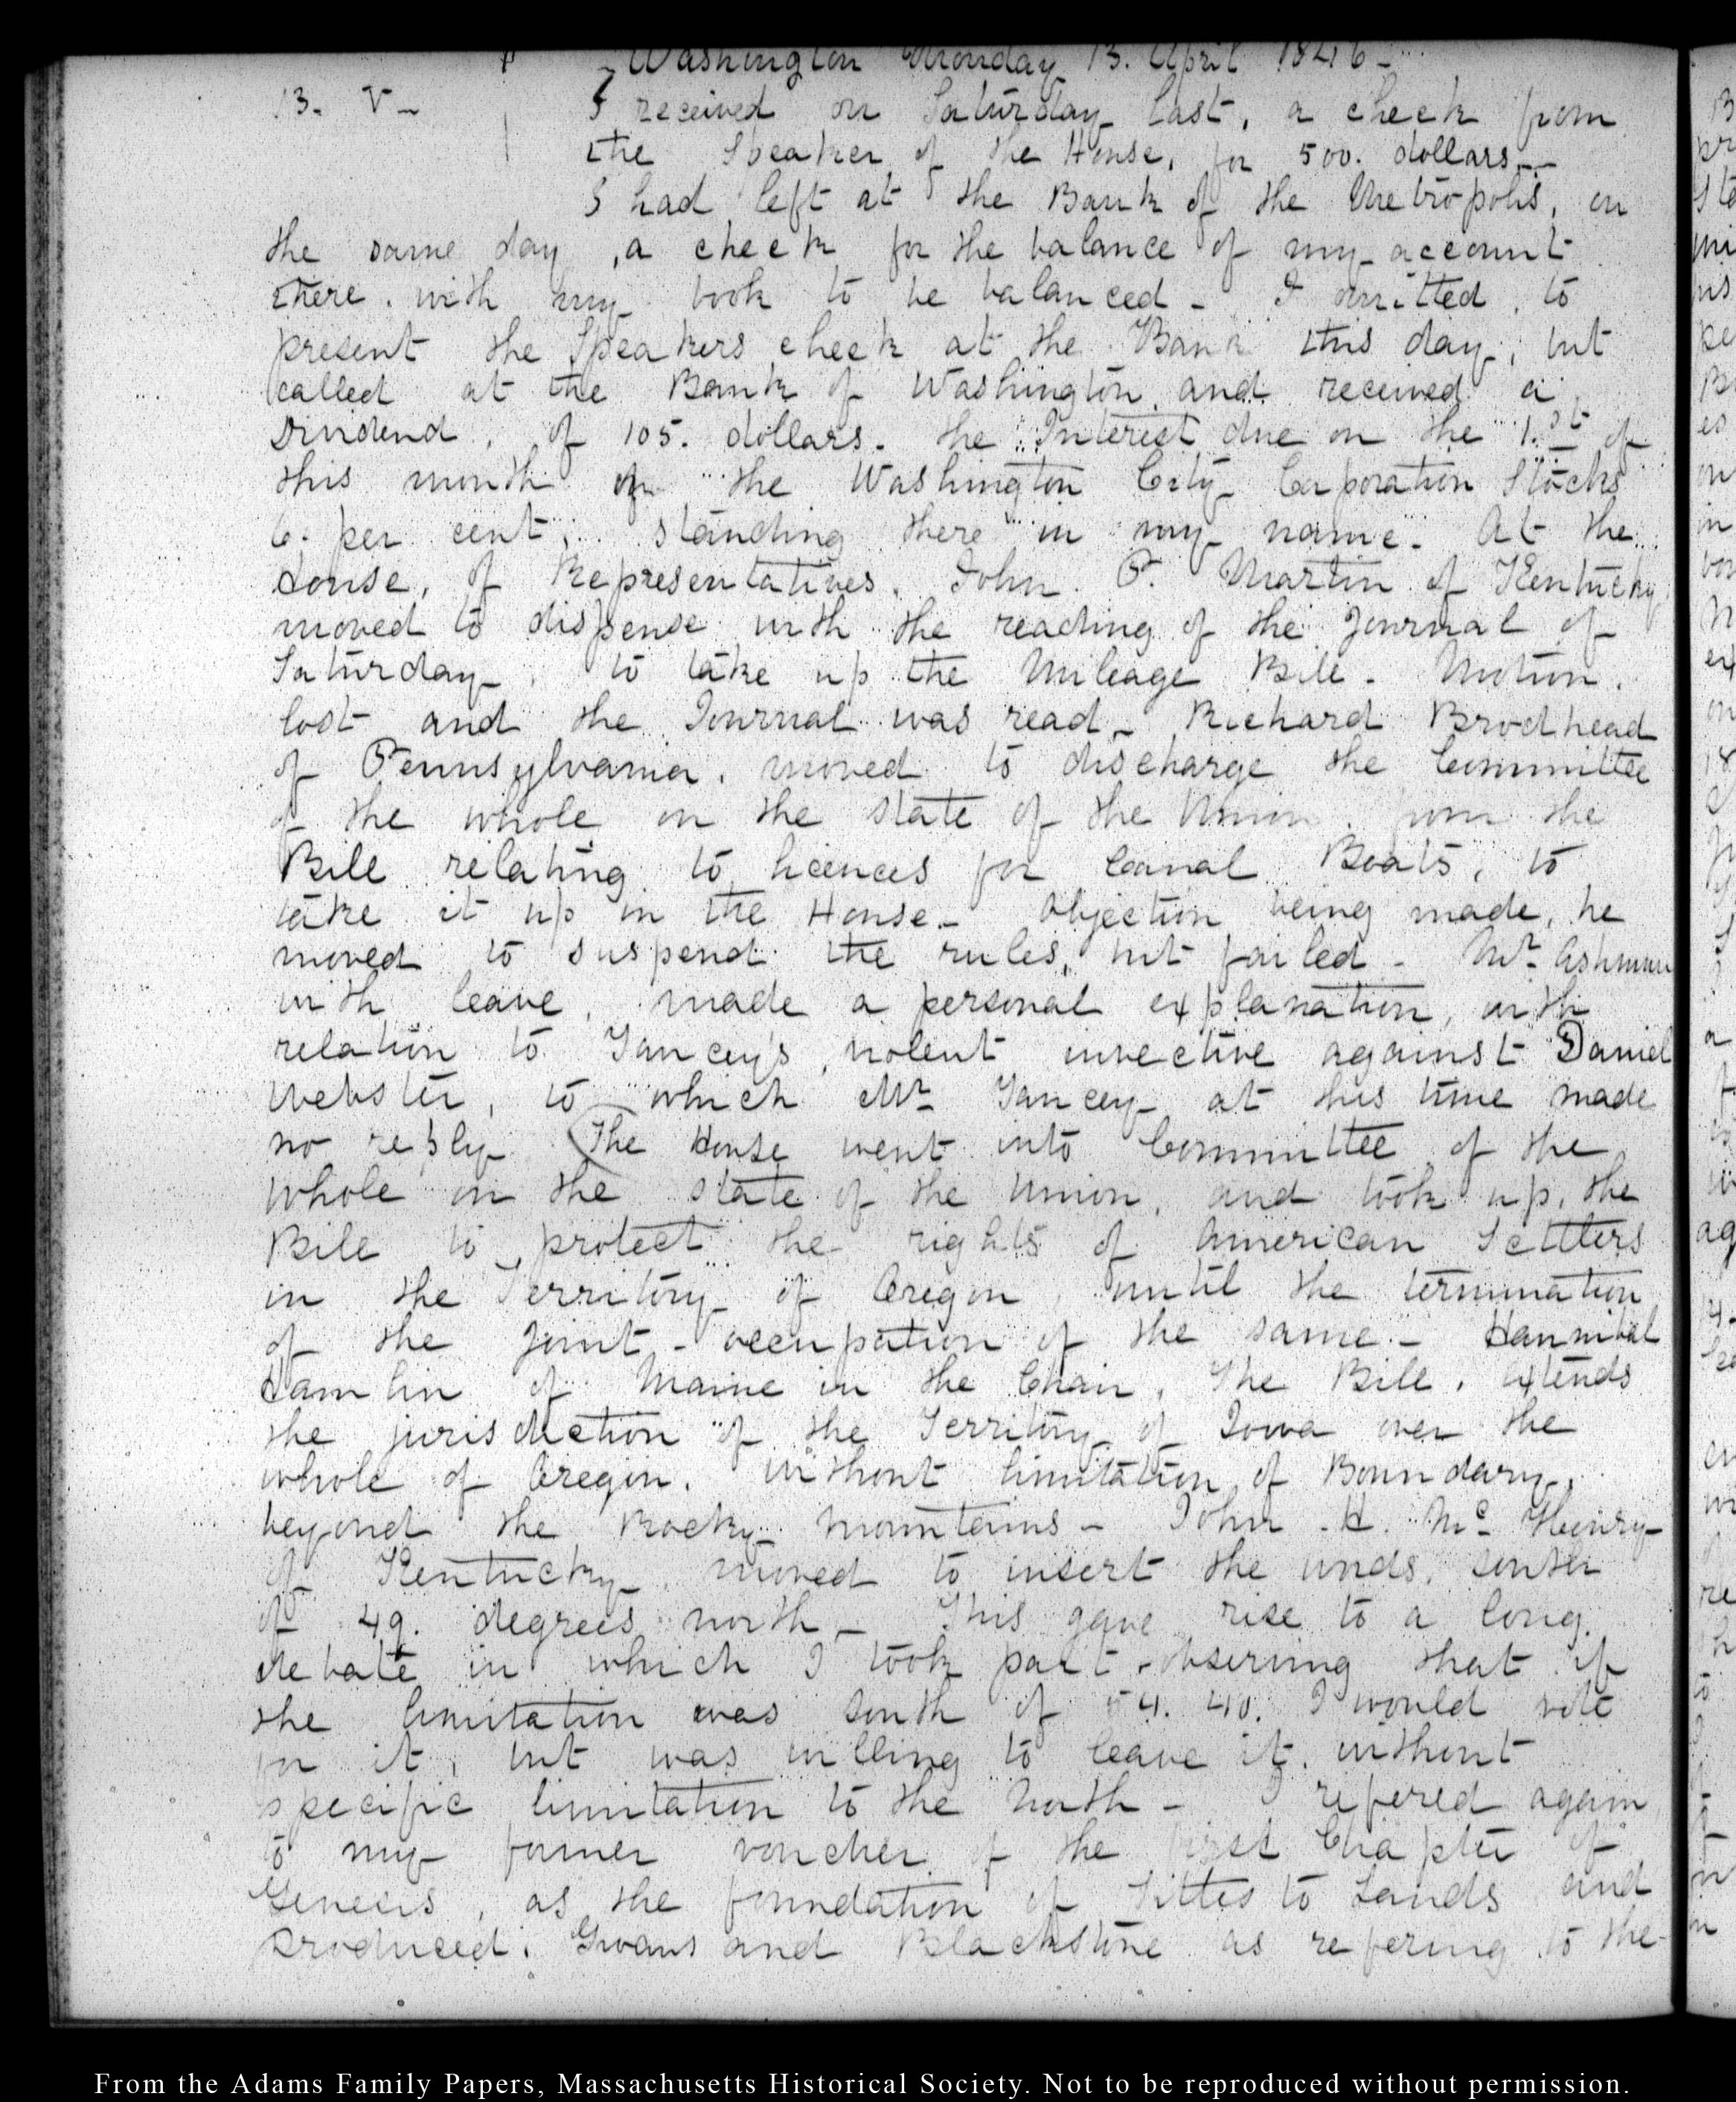 Washington Monday 13. April 1846 -
13. V - I received on Saturday last, a check from
the Speaker of the House, for 500. dollars. -
I had left at the Bank of the Metropolis, on
the same day, a check for the balance of my account
there. with my book to be balanced - I omitted, to
present the Speakers check at the Bank this day, but
called at the Bank of Washington, and received a
Dividend, of 105. dollars. the Interest due on the 1.st of
this month on the Washington City Corporation Stocks
6. per cent, standing there in my name. At the
House, of Representatives, John P. Martin of Kentucky
moved to dispense with the reading of the Journal of
Saturday, to take up the Mileage Bill - Motion.
lost and the Journal was read - Richard Brodhead
of Pennsylvania, moved to discharge the Committee
of the whole on the state of the Union, from the
Bill relating to licences for Canal Boats, to
take it up in the House - Objection being made, he
moved to suspend the rules, but failed - Mr. Ashmun
with leave, made a personal explanation, with
relation to Yancey's, violent invective against Daniel
Webster, to which Mr. Yancey at this time made
no reply (The House went into Committee of the
whole on the state of the Union, and took up, the
Bill to protect the rights of American Settlers
in the Territory of Oregon, until the termination
of the joint - occupation of the same - Hannibal
Hamlin of Maine in the Chair, The Bill, extends
the jurisdiction of the Territory of Iowa over the
whole of Oregon, without limitation of Boundary,
beyond the Rocky Mountains - John H. Mc Henry
of Kentucky, moved to insert the words, south
of 49. degrees north - This gave rise to a long
debate in which I took part, observing that if
the limitation was South of 54. 40. I would vote
for it, but was willing to leave it, without
specific limitation to the North - I refered again
to my former voucher of the first Chapter of
Genesis, as the foundation of Titles to Lands and
produced, and Blackstone as refering to the

From the Adams Family Papers, Massachusetts Historical Society. Not to be reproduced without permission.